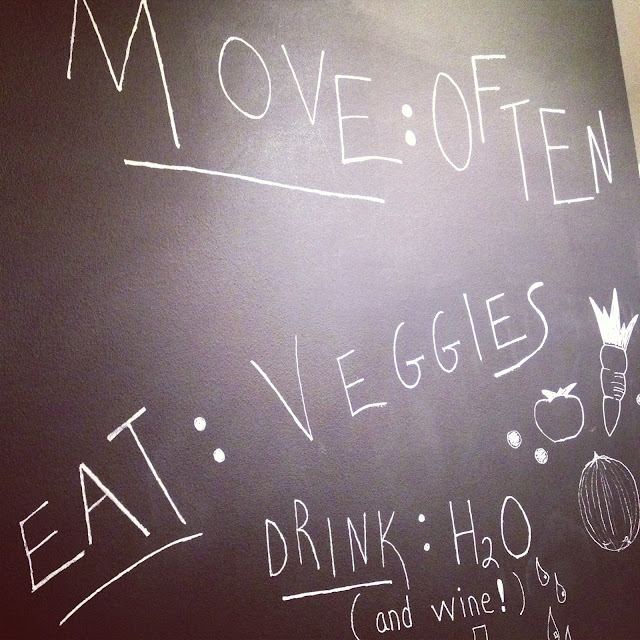 MOVE: OFTEN
EAT: VEGGIES
DRINK: H2O
(and wine!)